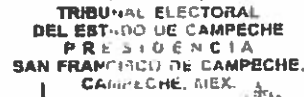 TRIBUNAL ELECTORAL
DEL ESTADO DE CAMPECHE
PRESIDENCIA
SAN FRANCISCO DE CAMPECHE,
CAMPECHE, MEX.